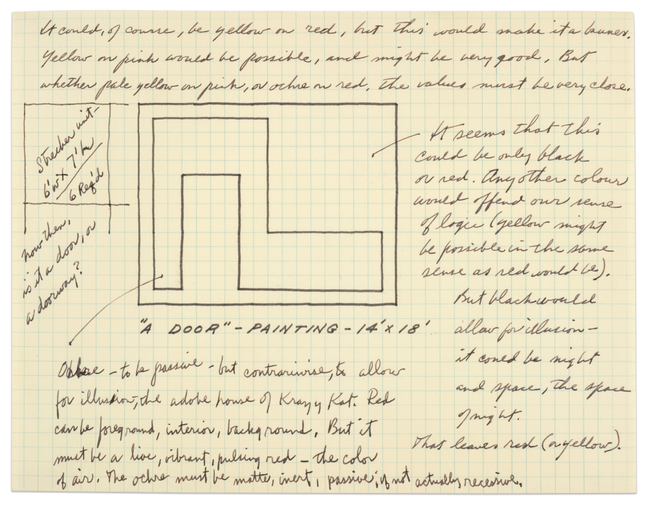 It could, of course, be yellow on red, but this would make it a banner.
Yellow on pink would be possible, and might be very good. But
whether pale yellow on pink, or ochre on red, the values must be very close.
Strecher unit–
6'w x 7'h
6 Req'd
now then,
is it a door, or
a doorway?
It seems that this
could be only black
or red. Any other colour
would offend our sense
of logic (yellow might
be possible in the same
sense as red would be).
But black would
allow for illusion –
it could be night
and space, the space
of night.
That leaves red (or yellow).
"A DOOR" – PAINTING – 14' x 18'
Ochre – to be passive – but contrariwise, to allow
for illusion, the adobe house of Krazy Kat. Red
can be foreground, interior, background. But it
must be a live, vibrant, pulsing red – the color
of air. The ochre must be matte, inert, passive, if not actually recessive.